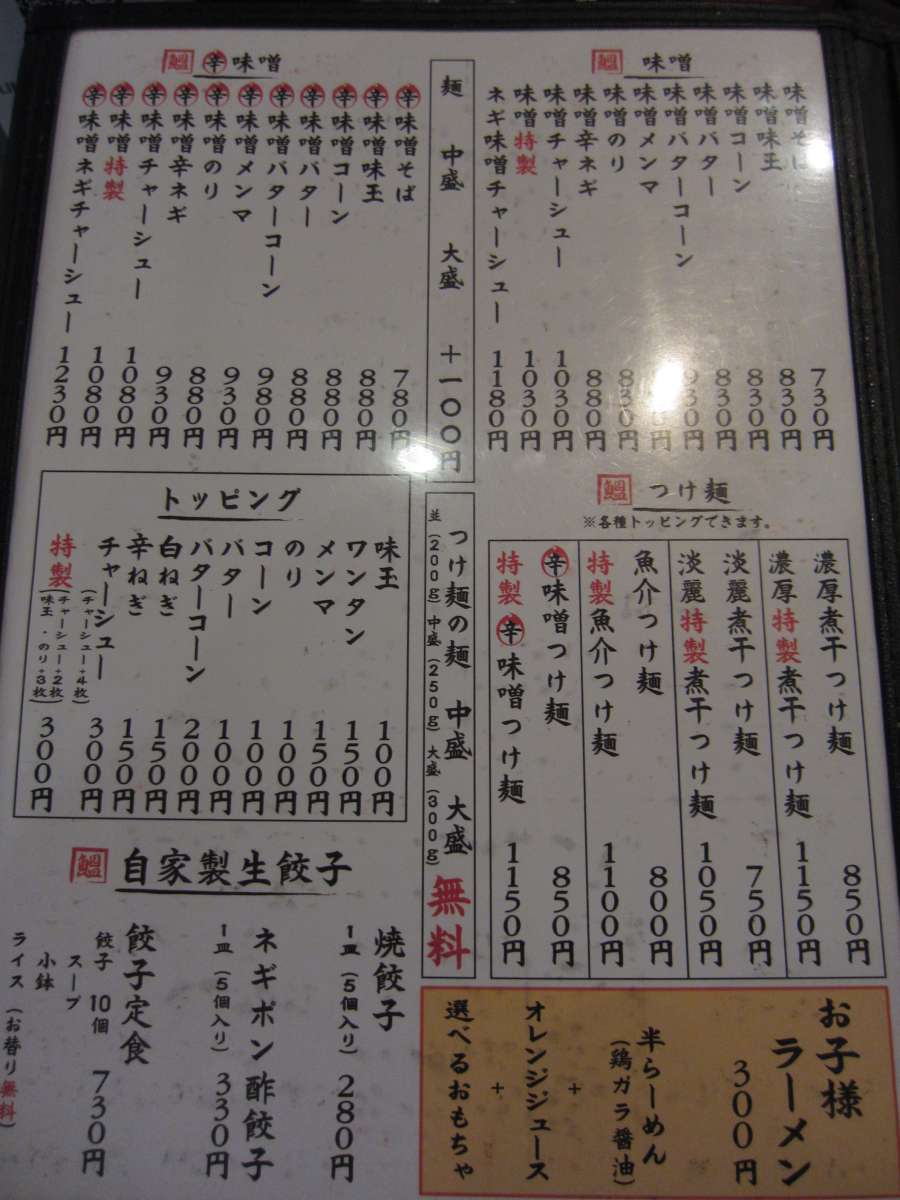 鰮 味噌
味噌そば 730円
味噌味玉 830円
味噌コーン 830円
味噌バター 830円
味噌バターコーン 930円
味噌メンマ
味噌のり 830円
味噌辛ネギ 880円
味噌チャーシュー 1030円
味噌特製 1030円
ネギ味噌チャーシュー 1180円
麺 中盛 大盛 +一〇〇円
鰮 辛味噌
辛味噌そば 780円
辛味噌味玉 880円
辛味噌コーン 880円
辛味噌バター 880円
辛味噌バターコーン 980円
辛味噌メンマ 930円
辛味噌のり 880円
辛味噌辛ネギ 930円
辛味噌チャーシュー 1080円
辛味噌特製 1080円
辛味噌ネギチャーシュー 1230円
鰮 つけ麺
※各種トッピングできます。
濃厚煮干つけ麺 850円
濃厚特製煮干つけ麺 1150円
淡麗煮干つけ麺 750円
淡麗特製煮干つけ麺 1050円
魚介つけ麺 800円
特製魚介つけ麺 1100円
辛味噌つけ麺 850円
特製辛味噌つけ麺 1150円
つけ麺の麺 中盛 大盛 無料
並(200g) 中盛(250g) 大盛(300g)
トッピング
味玉 100円
ワンタン 150円
メンマ 150円
のり 100円
コーン 100円
バター 100円
バターコーン 200円
白ねぎ 150円
辛ねぎ 150円
チャーシュー 300円
(チャーシュー+4枚)
特製 300円
(チャーシュー+2枚
味玉・のり+3枚)
お子様
ラーメン
300円
半らーめん
(鶏ガラ醤油)
+
オレンジジュース
+
選べるおもちゃ
鰮 自家製生餃子
焼餃子 280円
1皿(5個入り)
ネギポン酢餃子 330円
1皿(5個入り)
餃子定食 730円
餃子 10個
スープ
小鉢
ライス(お替り無料)